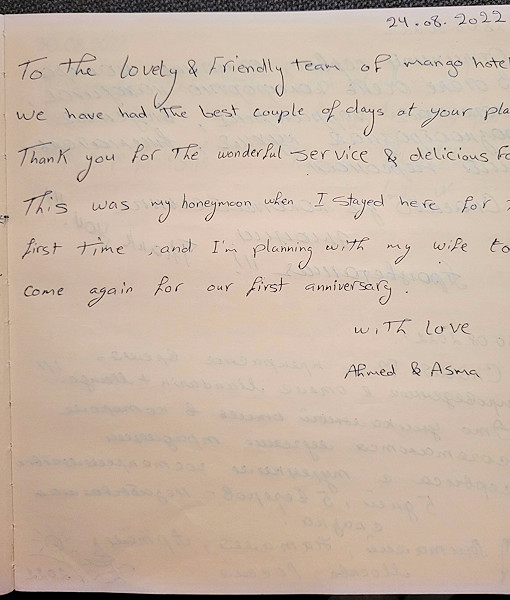 24.08.2022
To the lovely & Friendly team of mango hotel
we have had the best couple of days at your
Thank you for the wonderful service & delicious
This was my honeymoon when I stayed here for
first time, and I'm planning with my wife to
come again for our first anniversary.
with love
Ahmed & Asma